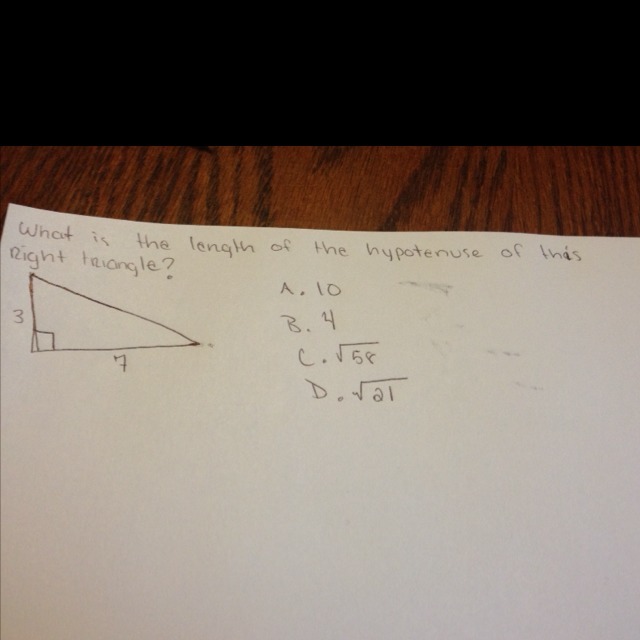 What is the length of the hypotenuse of this
Right triangle?
3
7
A. 10
B. 4
C. √58
D. √21